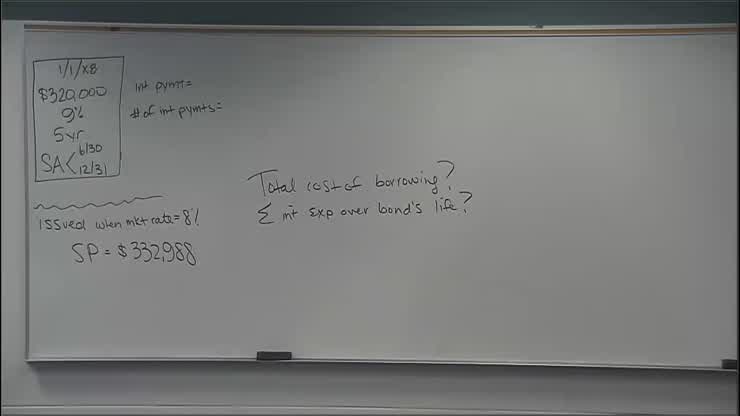 1/1/x8
$320,000
9%
5yr
SA< 6/30
12/31
int pymt=
# of int pymts=
Issued when mkt rate=8%
SP = $332,988
Total cost of borrowing?
Σ int exp over bond's life?